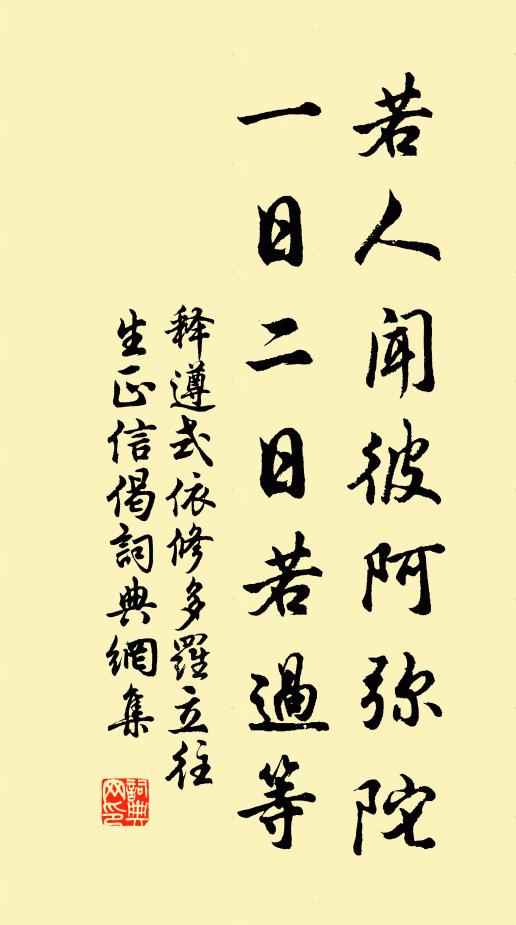 若人闻彼阿弥陀
一日二日若過等
释遵式依修多羅立往
生正信偈詞典網集
詞典网印